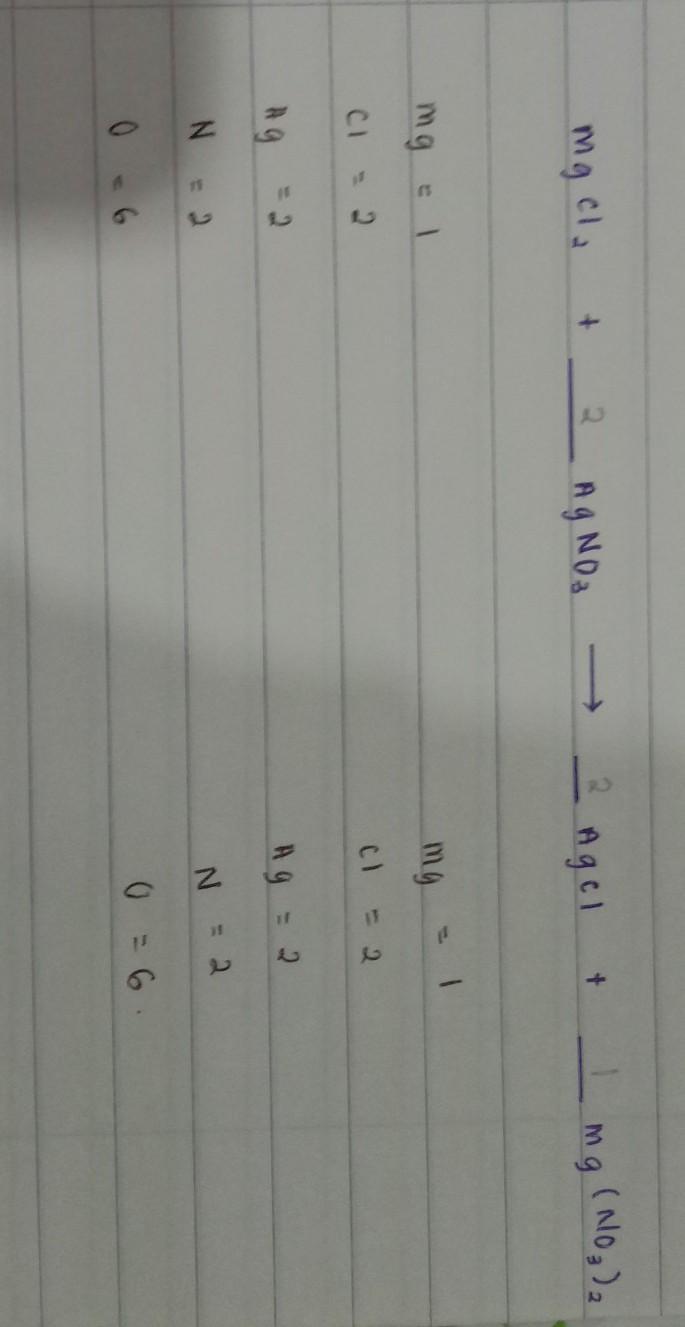 mgCl₂ + 2 AgNO₃ → 2 AgCl + 1 mg(NO₃)₂
mg = 1 mg = 1
Cl = 2 Cl = 2
Ag = 2 Ag = 2
N = 2 N = 2
O = 6 O = 6.